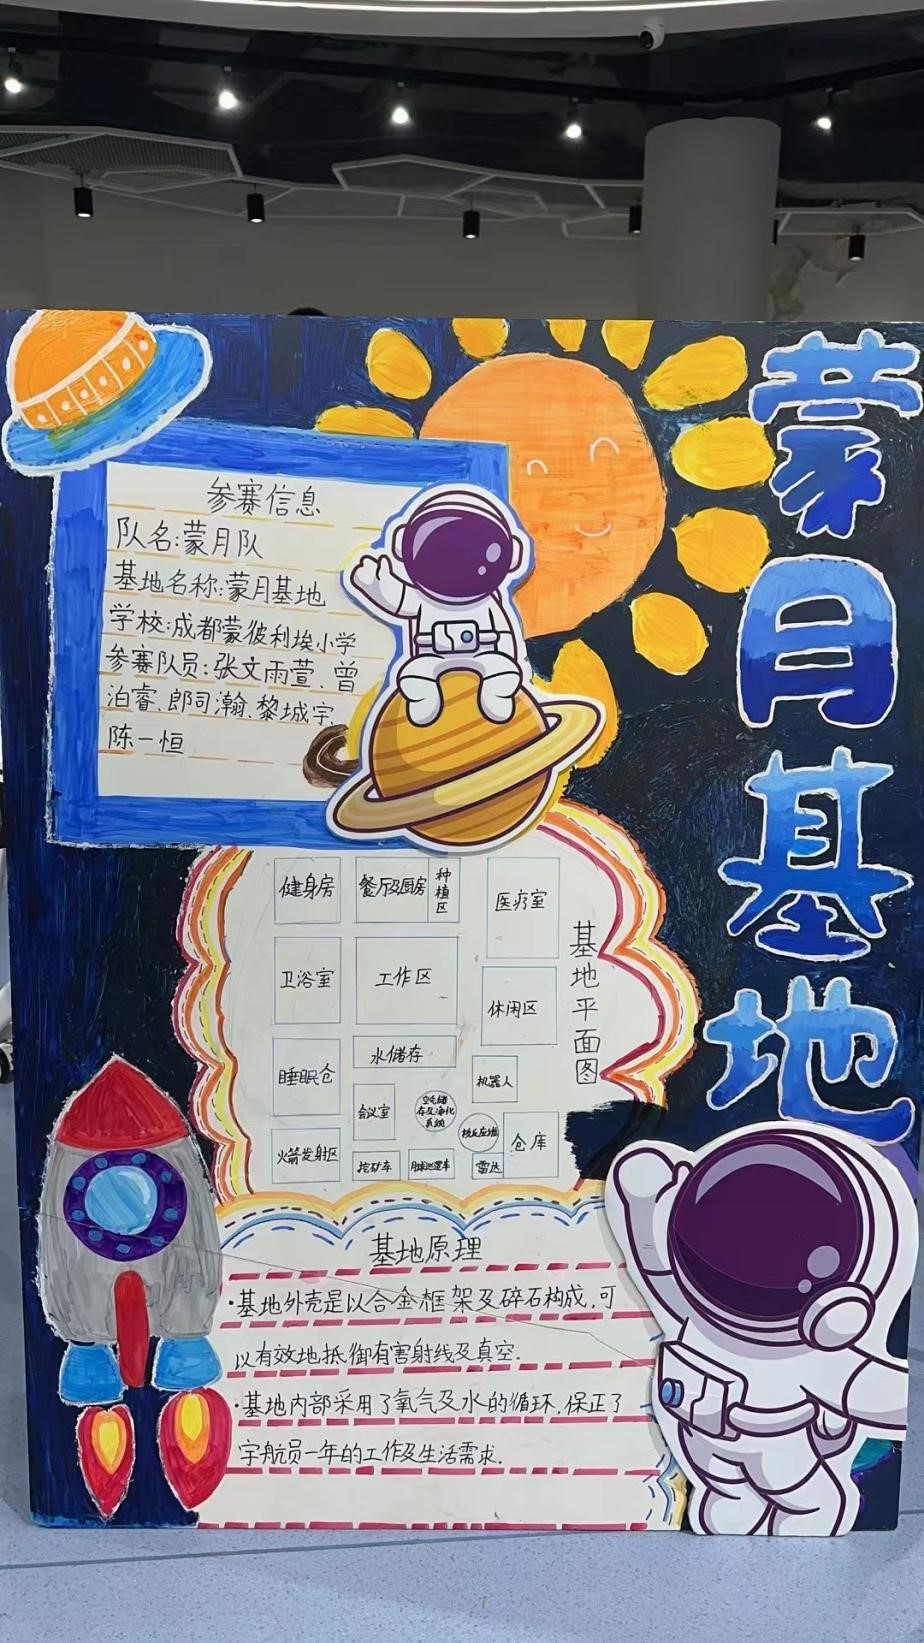 蒙月基地
参赛信息
队名:蒙月队
基地名称:蒙月基地
学校:成都蒙彼利埃小学
参赛队员:张文雨萱、曾
泊睿、郎司瀚、黎城宇、
陈一恒
健身房
餐厅及厨房
种植区
医疗室
卫浴室
工作区
休闲区
基地平面图
水储存
睡眠仓
机器人
会议室
空气储
存及净化
系统
核反应堆
仓库
火箭发射区
挖矿车
月球巡逻车
雷达
基地原理
·基地外壳是以合金框架及碎石构成,可
以有效地抵御有害射线及真空.
·基地内部采用了氧气及水的循环,保正了
宇航员一年的工作及生活需求.